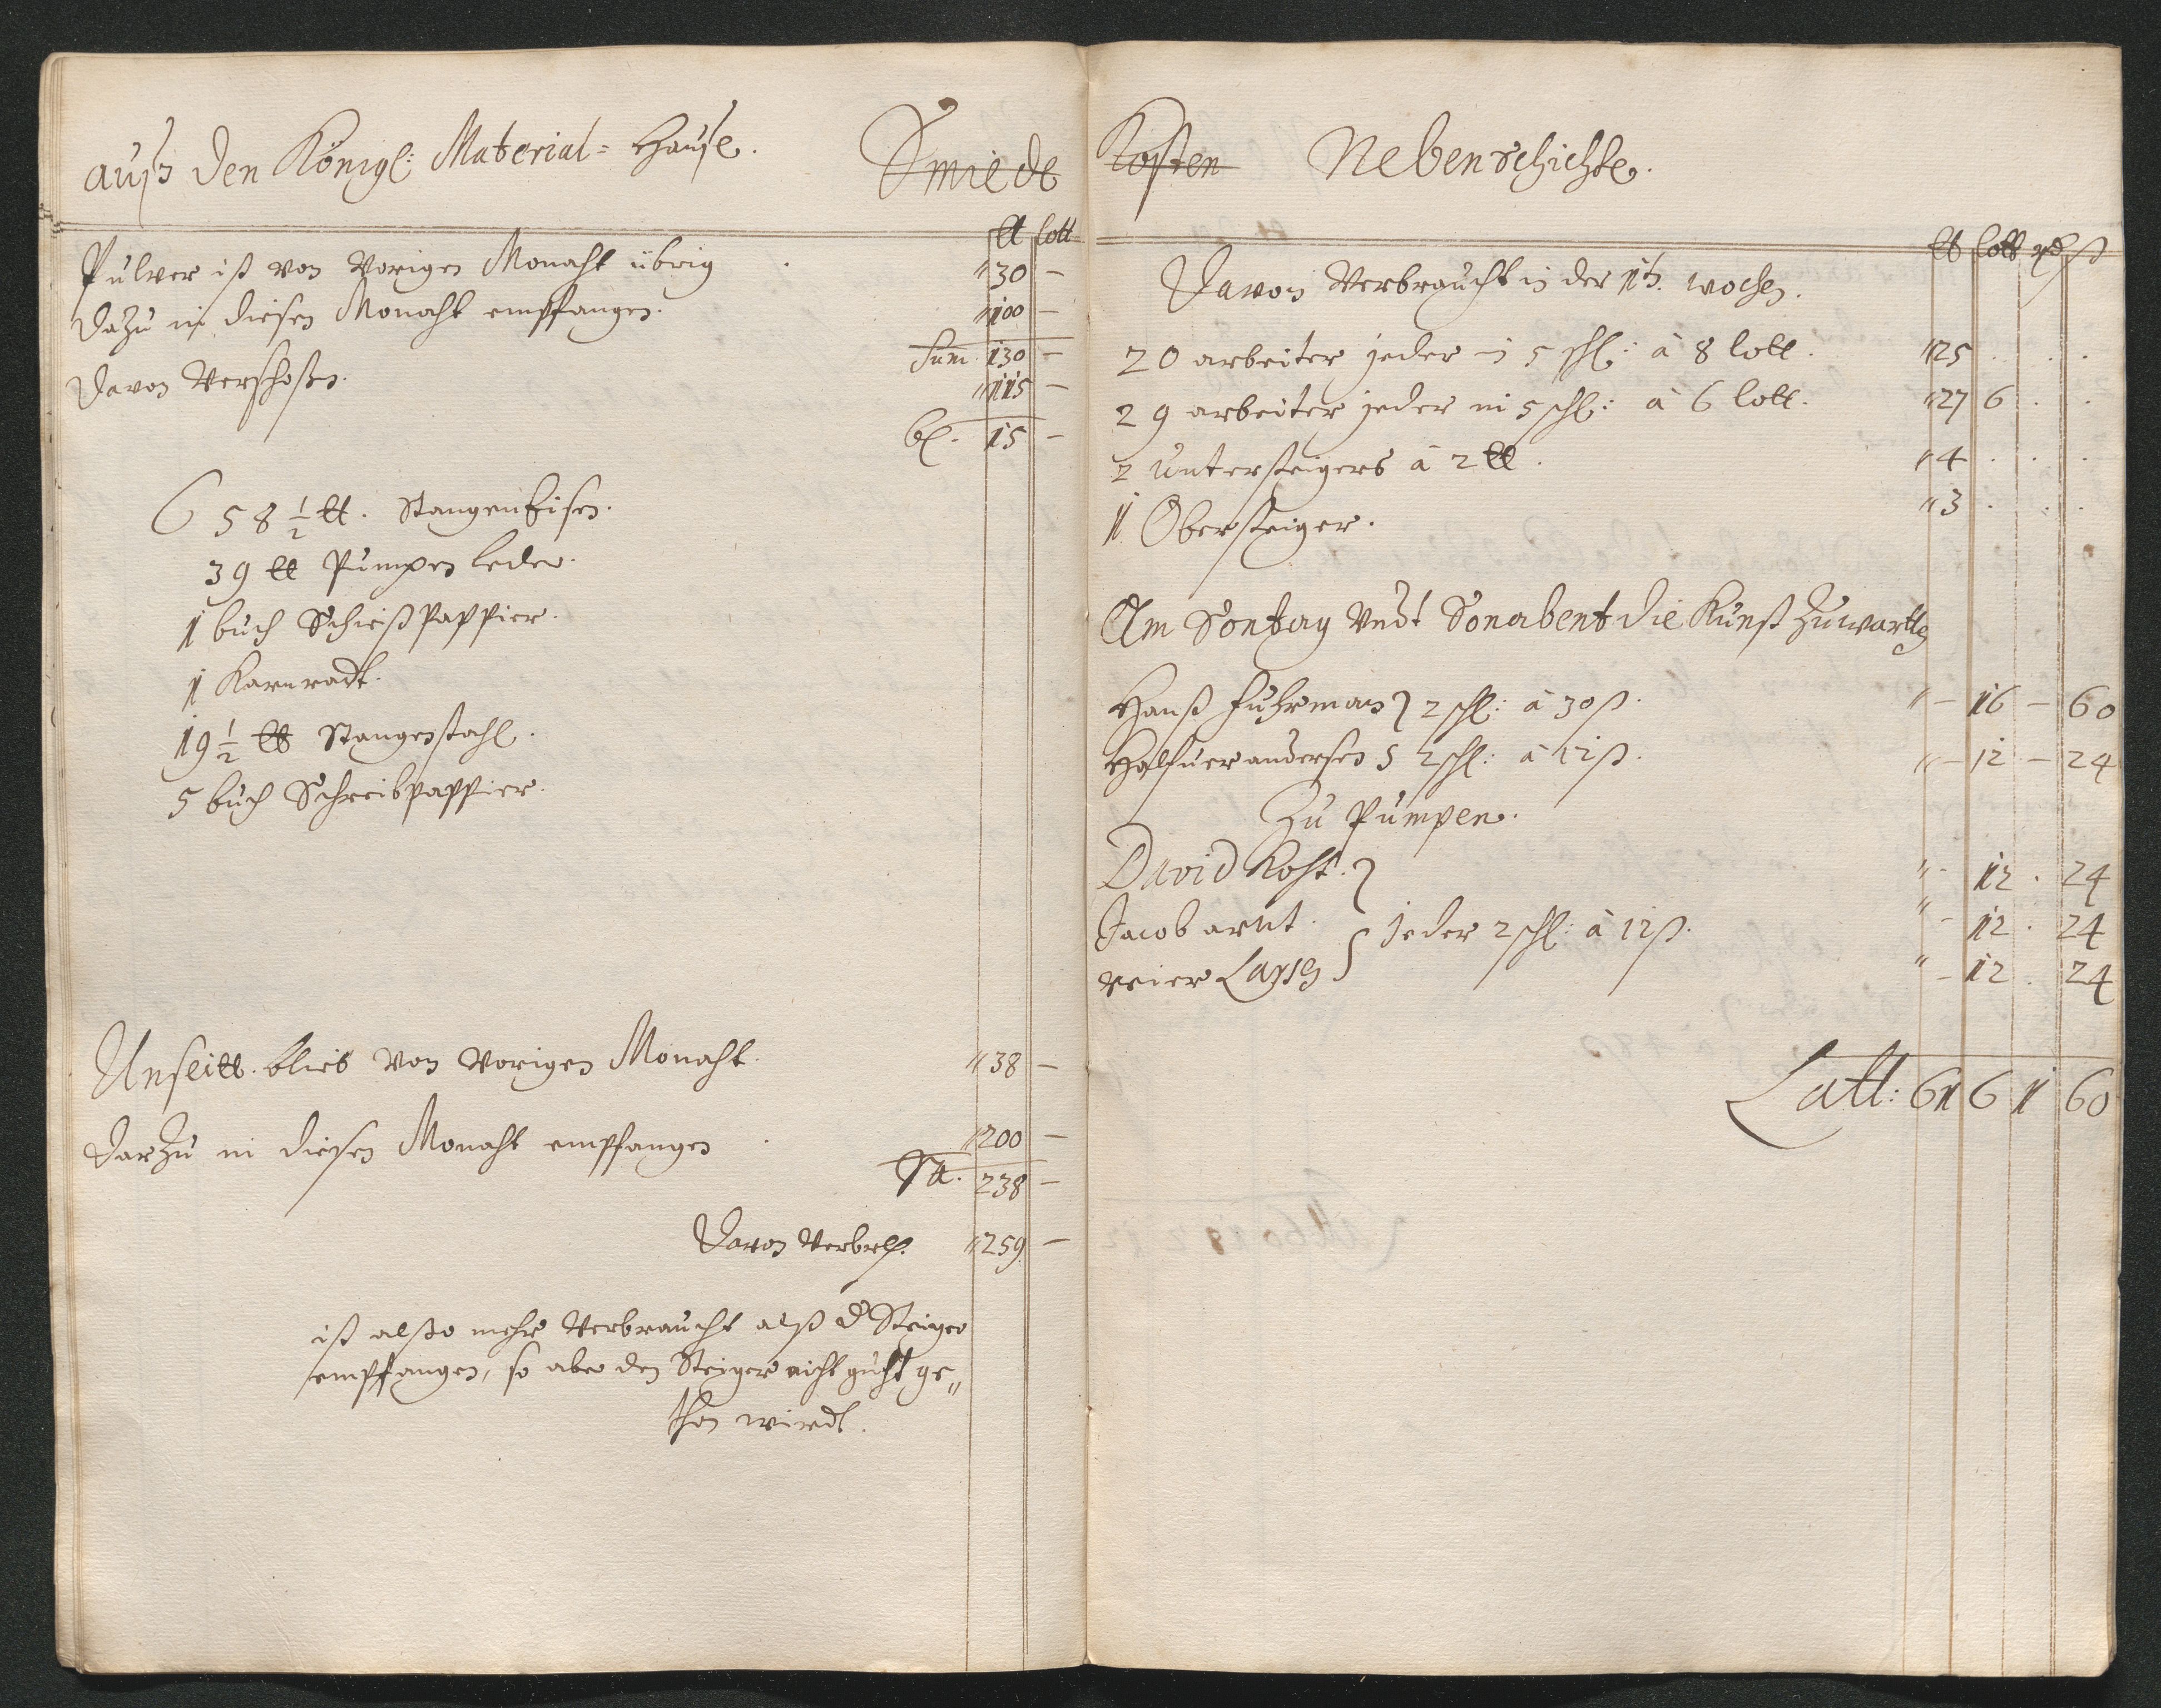 auß den Königl: Material= Hauße. Smiede
lb lott
Pulver ist von Vorigen Monaht übrig . "30 –
dazu in diesen Monaht empfangen. "100 –
Sum 130 –
davon Verschoßen. "115 –
bl. 15 –
658 1/2 lb. Stangen Eisen.
39 lb Pumpen leder.
1 buch Schieß Pappier.
1 Karnradt.
19 1/2 lb Stangen stahl.
5 buch Schreibpappier.
Unseltt. blieb von Vorigen Monaht. "38 –
darzu in diesen Monaht empfangen . "200 –
Sa. 238 –
Davon Verbrch. "259 –
ist alßo mehr Verbraucht alß d Steiger
empfangen, so aber den Steiger nicht guht ge„
than wirdt.
Kosten Nebenschichte.
lb lott rd ß
Davon Verbraucht in der 1t. wochen.
20 arbeiter jeder in 5 schl: à 8 lott. "25 . . .
29 arbeiter jeder in 5 schl: à 6 lott. "27 6 . .
2 Untersteigers à 2 lb. "4 . . .
1 Obersteiger. "3 . . .
Am Sontag Undt Sonabent die Kunst Zuwartten
Hanß Fuhrman } 2 schl: à 30 ß. " – 16 – 60
Halfuer andersen } 2 schl: à 12 ß. " – 12 – 24
Zu Pumpen.
David Koht. } " – 12 . 24
Jacob arnt. } Jeder 2 schl: à 12 ß. " – 12 . 24
reier Larsen } " – 12 . 24
Latt: 61 6 1 60